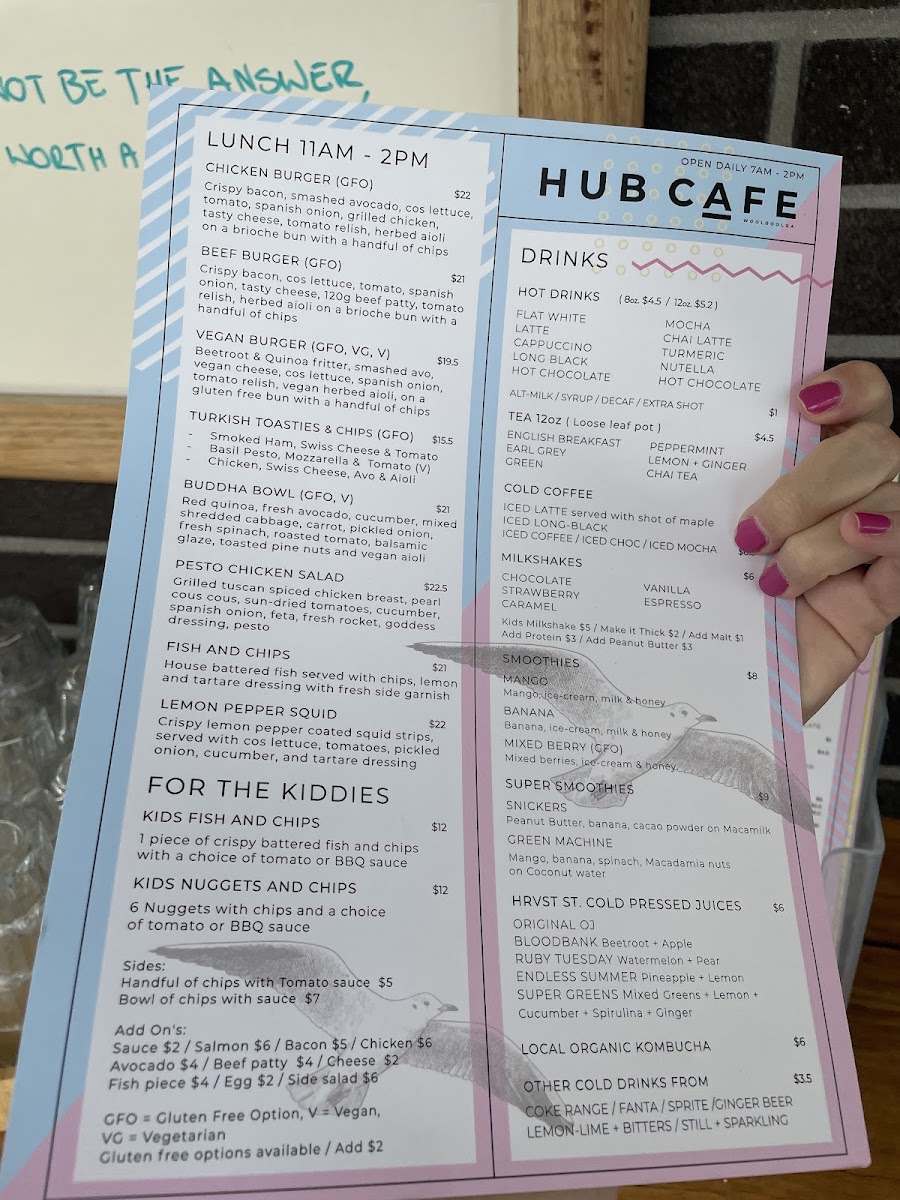 NOT BE THE ANSWER,
WORTH A
LUNCH 11AM - 2PM
CHICKEN BURGER (GFO) $22
Crispy bacon, smashed avocado, cos lettuce,
tomato, spanish onion, grilled chicken,
tasty cheese, tomato relish, herbed aioli
on a brioche bun with a handful of chips
BEEF BURGER (GFO) $21
Crispy bacon, cos lettuce, tomato, spanish
onion, tasty cheese, 120g beef patty, tomato
relish, herbed aioli on a brioche bun with a
handful of chips
VEGAN BURGER (GFO, VG, V) $19.5
Beetroot & Quinoa fritter, smashed avo,
vegan cheese, cos lettuce, spanish onion,
tomato relish, vegan herbed aioli, on a
gluten free bun with a handful of chips
TURKISH TOASTIES & CHIPS (GFO) $15.5
- Smoked Ham, Swiss Cheese & Tomato
- Basil Pesto, Mozzarella & Tomato (V)
- Chicken, Swiss Cheese, Avo & Aioli
BUDDHA BOWL (GFO, V) $21
Red quinoa, fresh avocado, cucumber, mixed
shredded cabbage, carrot, pickled onion,
fresh spinach, roasted tomato, balsamic
glaze, toasted pine nuts and vegan aioli
PESTO CHICKEN SALAD $22.5
Grilled tuscan spiced chicken breast, pearl
cous cous, sun-dried tomatoes, cucumber,
spanish onion, feta, fresh rocket, goddess
dressing, pesto
FISH AND CHIPS $21
House battered fish served with chips, lemon
and tartare dressing with fresh side garnish
LEMON PEPPER SQUID $22
Crispy lemon pepper coated squid strips,
served with cos lettuce, tomatoes, pickled
onion, cucumber, and tartare dressing
FOR THE KIDDIES
KIDS FISH AND CHIPS $12
1 piece of crispy battered fish and chips
with a choice of tomato or BBQ sauce
KIDS NUGGETS AND CHIPS $12
6 Nuggets with chips and a choice
of tomato or BBQ sauce
Sides:
Handful of chips with Tomato sauce $5
Bowl of chips with sauce $7
Add On's:
Sauce $2 / Salmon $6 / Bacon $5 / Chicken $6
Avocado $4 / Beef patty $4 / Cheese $2
Fish piece $4 / Egg $2 / Side salad $6
GFO = Gluten Free Option, V = Vegan,
VG = Vegetarian
Gluten free options available / Add $2
OPEN DAILY 7AM - 2PM
HUB CAFE
WOOLGOOLGA
DRINKS
HOT DRINKS (8oz. $4.5 / 12oz. $5.2)
FLAT WHITE
LATTE
CAPPUCCINO
LONG BLACK
HOT CHOCOLATE
MOCHA
CHAI LATTE
TURMERIC
NUTELLA
HOT CHOCOLATE
ALT-MILK / SYRUP / DECAF / EXTRA SHOT $1
TEA 12oz ( Loose leaf pot ) $4.5
ENGLISH BREAKFAST
EARL GREY
GREEN
PEPPERMINT
LEMON + GINGER
CHAI TEA
COLD COFFEE
ICED LATTE served with shot of maple
ICED LONG-BLACK
ICED COFFEE / ICED CHOC / ICED MOCHA
MILKSHAKES $6
CHOCOLATE
STRAWBERRY
CARAMEL
VANILLA
ESPRESSO
Kids Milkshake $5 / Make it Thick $2 / Add Malt $1
Add Protein $3 / Add Peanut Butter $3
SMOOTHIES $8
MANGO
Mango, ice-cream, milk & honey
BANANA
Banana, ice-cream, milk & honey
MIXED BERRY (GFO)
Mixed berries, ice-cream & honey
SUPER SMOOTHIES $9
SNICKERS
Peanut Butter, banana, cacao powder on Macamilk
GREEN MACHINE
Mango, banana, spinach, Macadamia nuts
on Coconut water
HRVST ST. COLD PRESSED JUICES $6
ORIGINAL OJ
BLOODBANK Beetroot + Apple
RUBY TUESDAY Watermelon + Pear
ENDLESS SUMMER Pineapple + Lemon
SUPER GREENS Mixed Greens + Lemon +
Cucumber + Spirulina + Ginger
LOCAL ORGANIC KOMBUCHA $6
OTHER COLD DRINKS FROM $3.5
COKE RANGE / FANTA / SPRITE /GINGER BEER
LEMON-LIME + BITTERS / STILL + SPARKLING